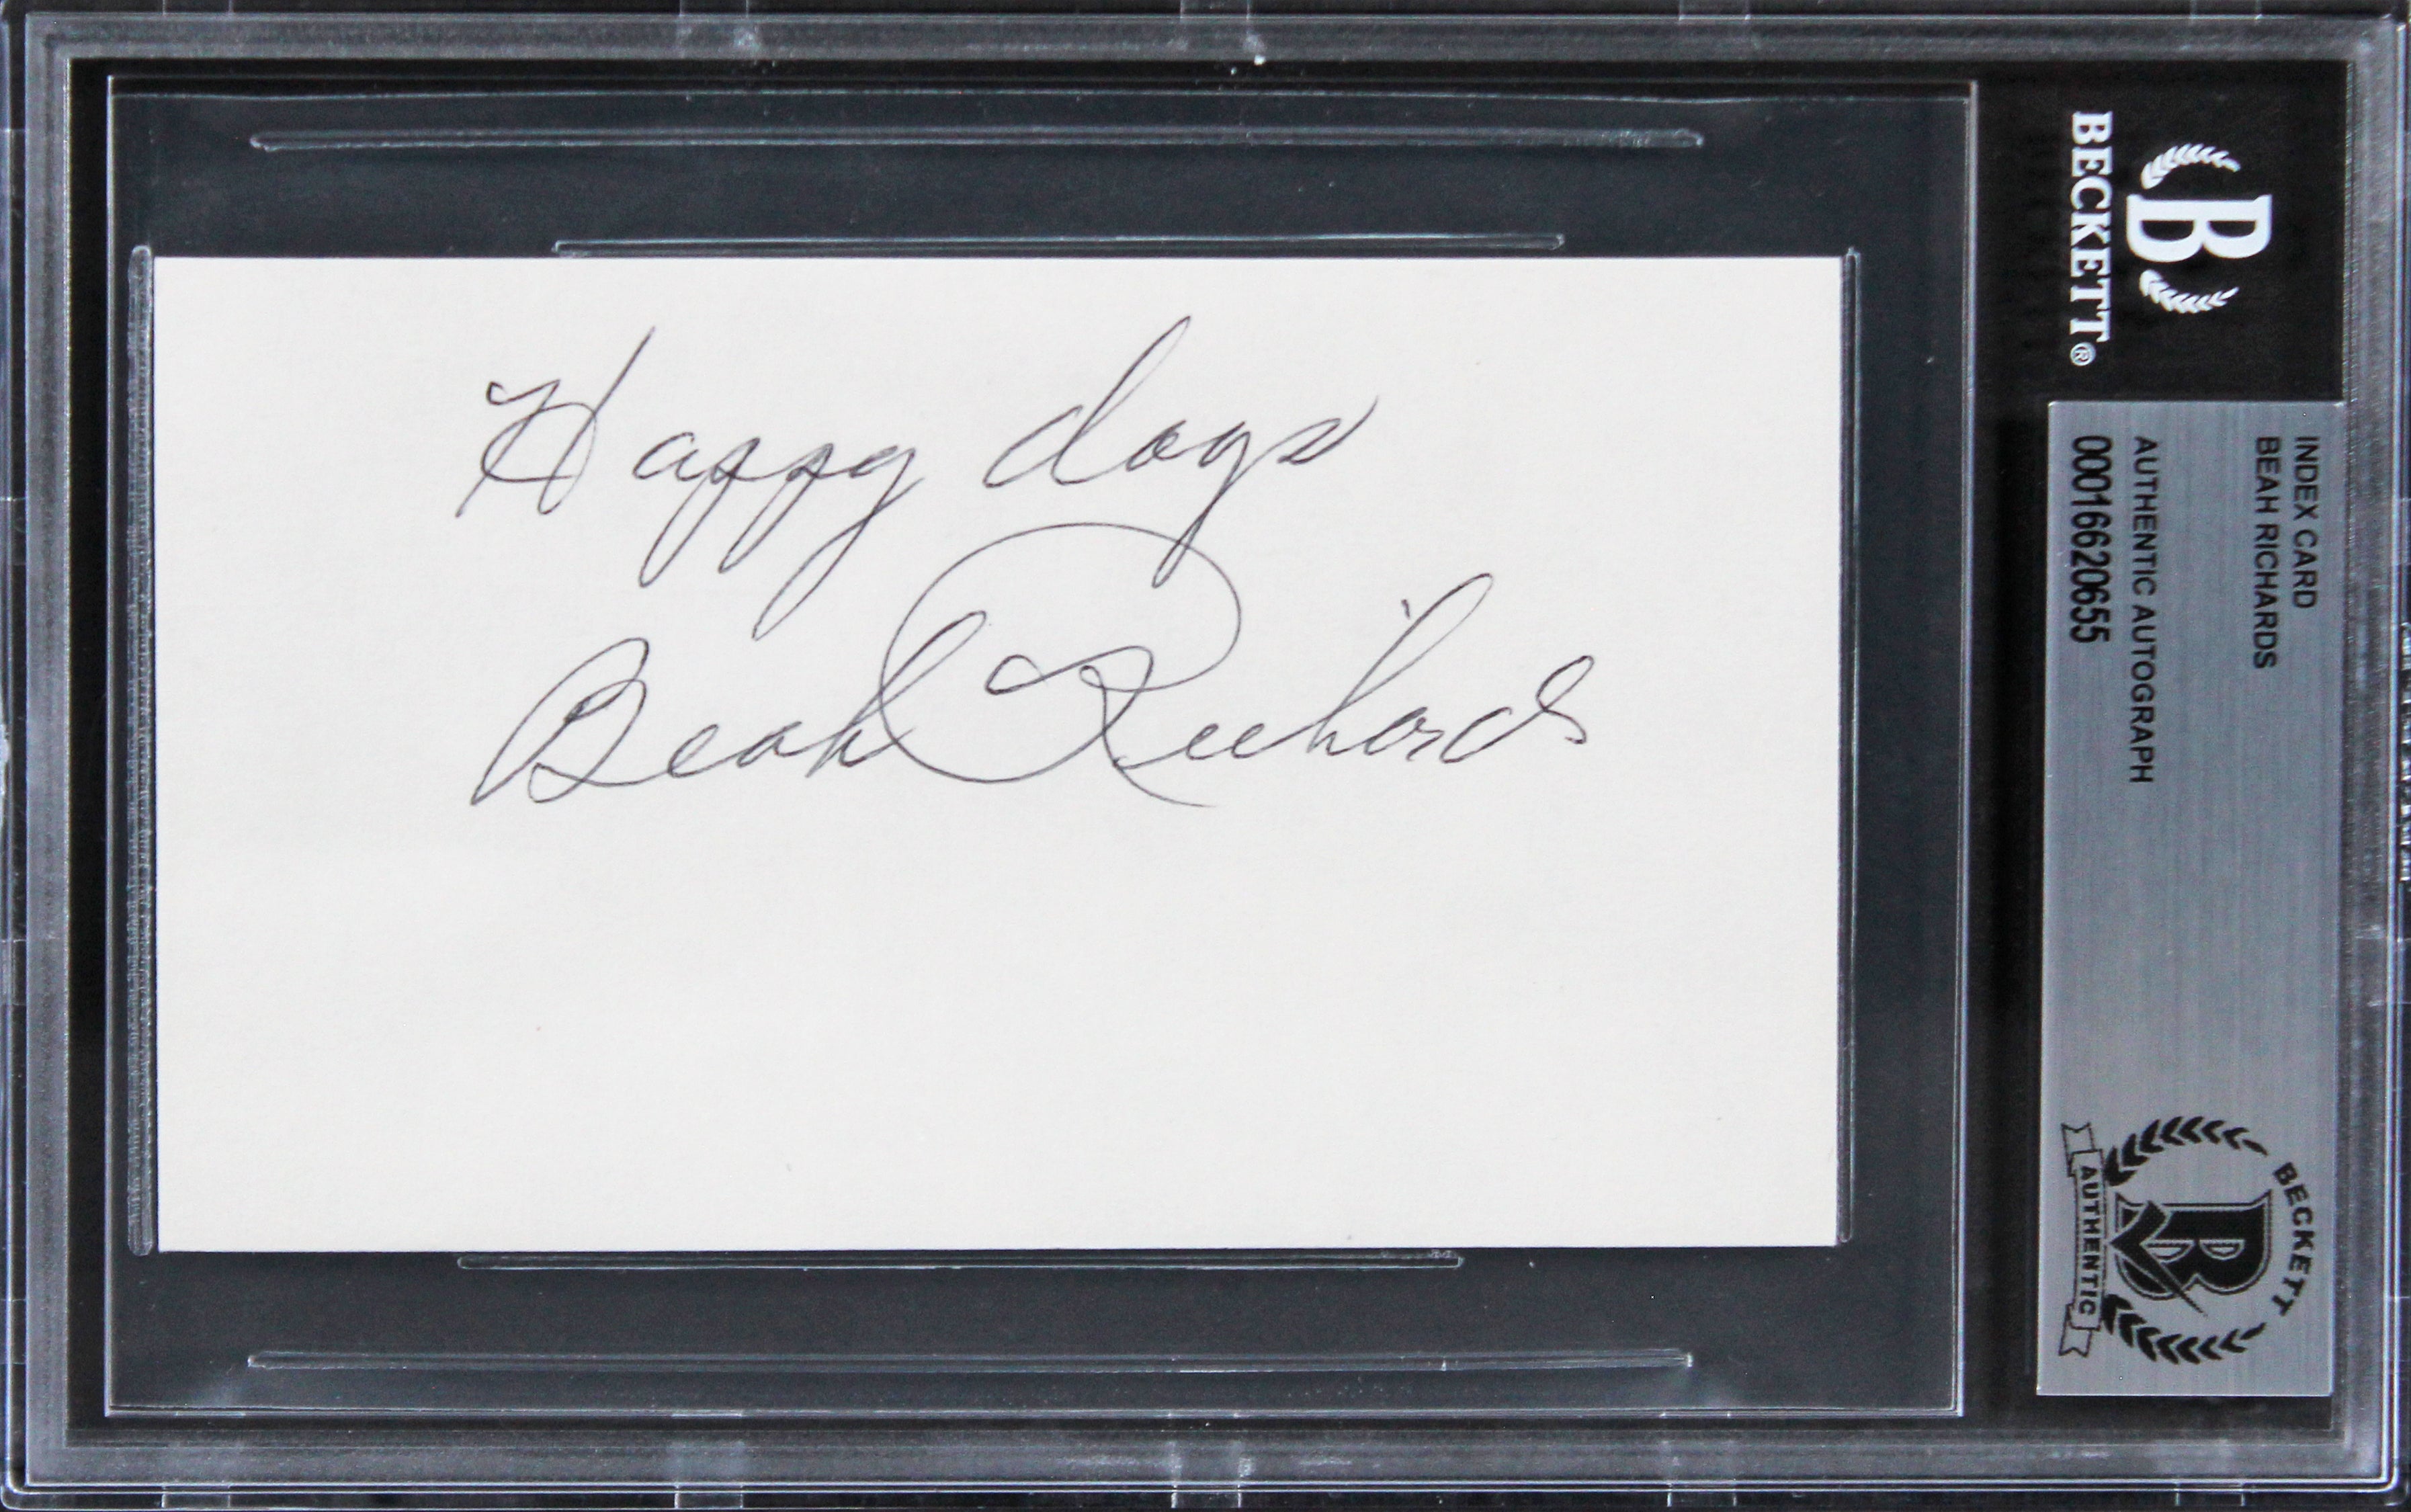 Happy days
Beah Richards
BECKETT®
B
INDEX CARD
BEAH RICHARDS
AUTHENTIC AUTOGRAPH
00016620655
BECKETT
B
AUTHENTIC